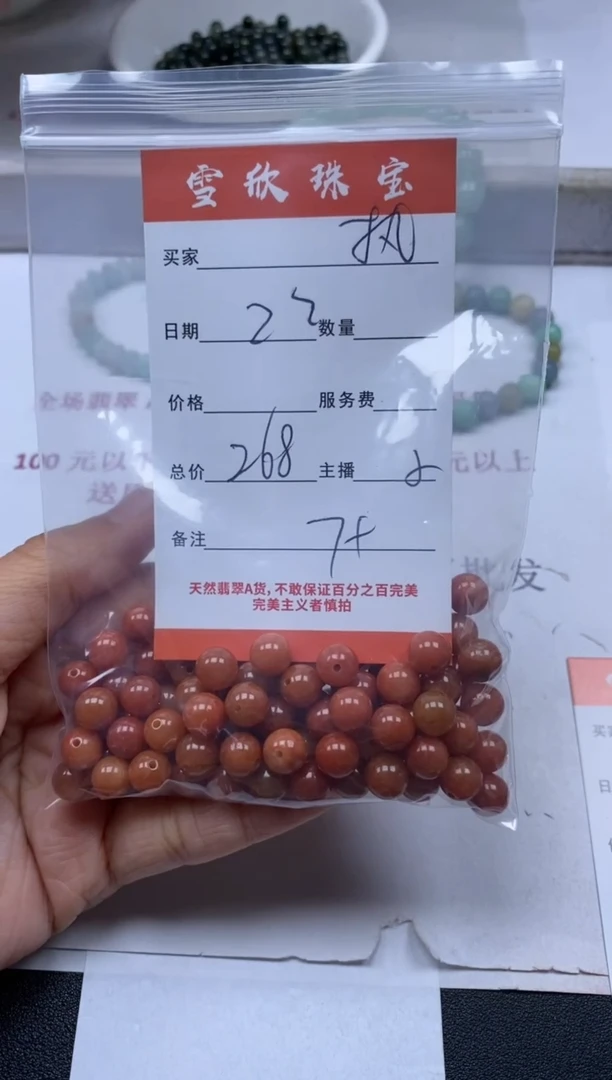 雪欣珠宝
买家
日期 数量
价格 服务费
总价 268 主播
备注 7+
天然翡翠A货,不敢保证百分之百完美
完美主义者慎拍
全场翡翠
100 元以
元以上
批发